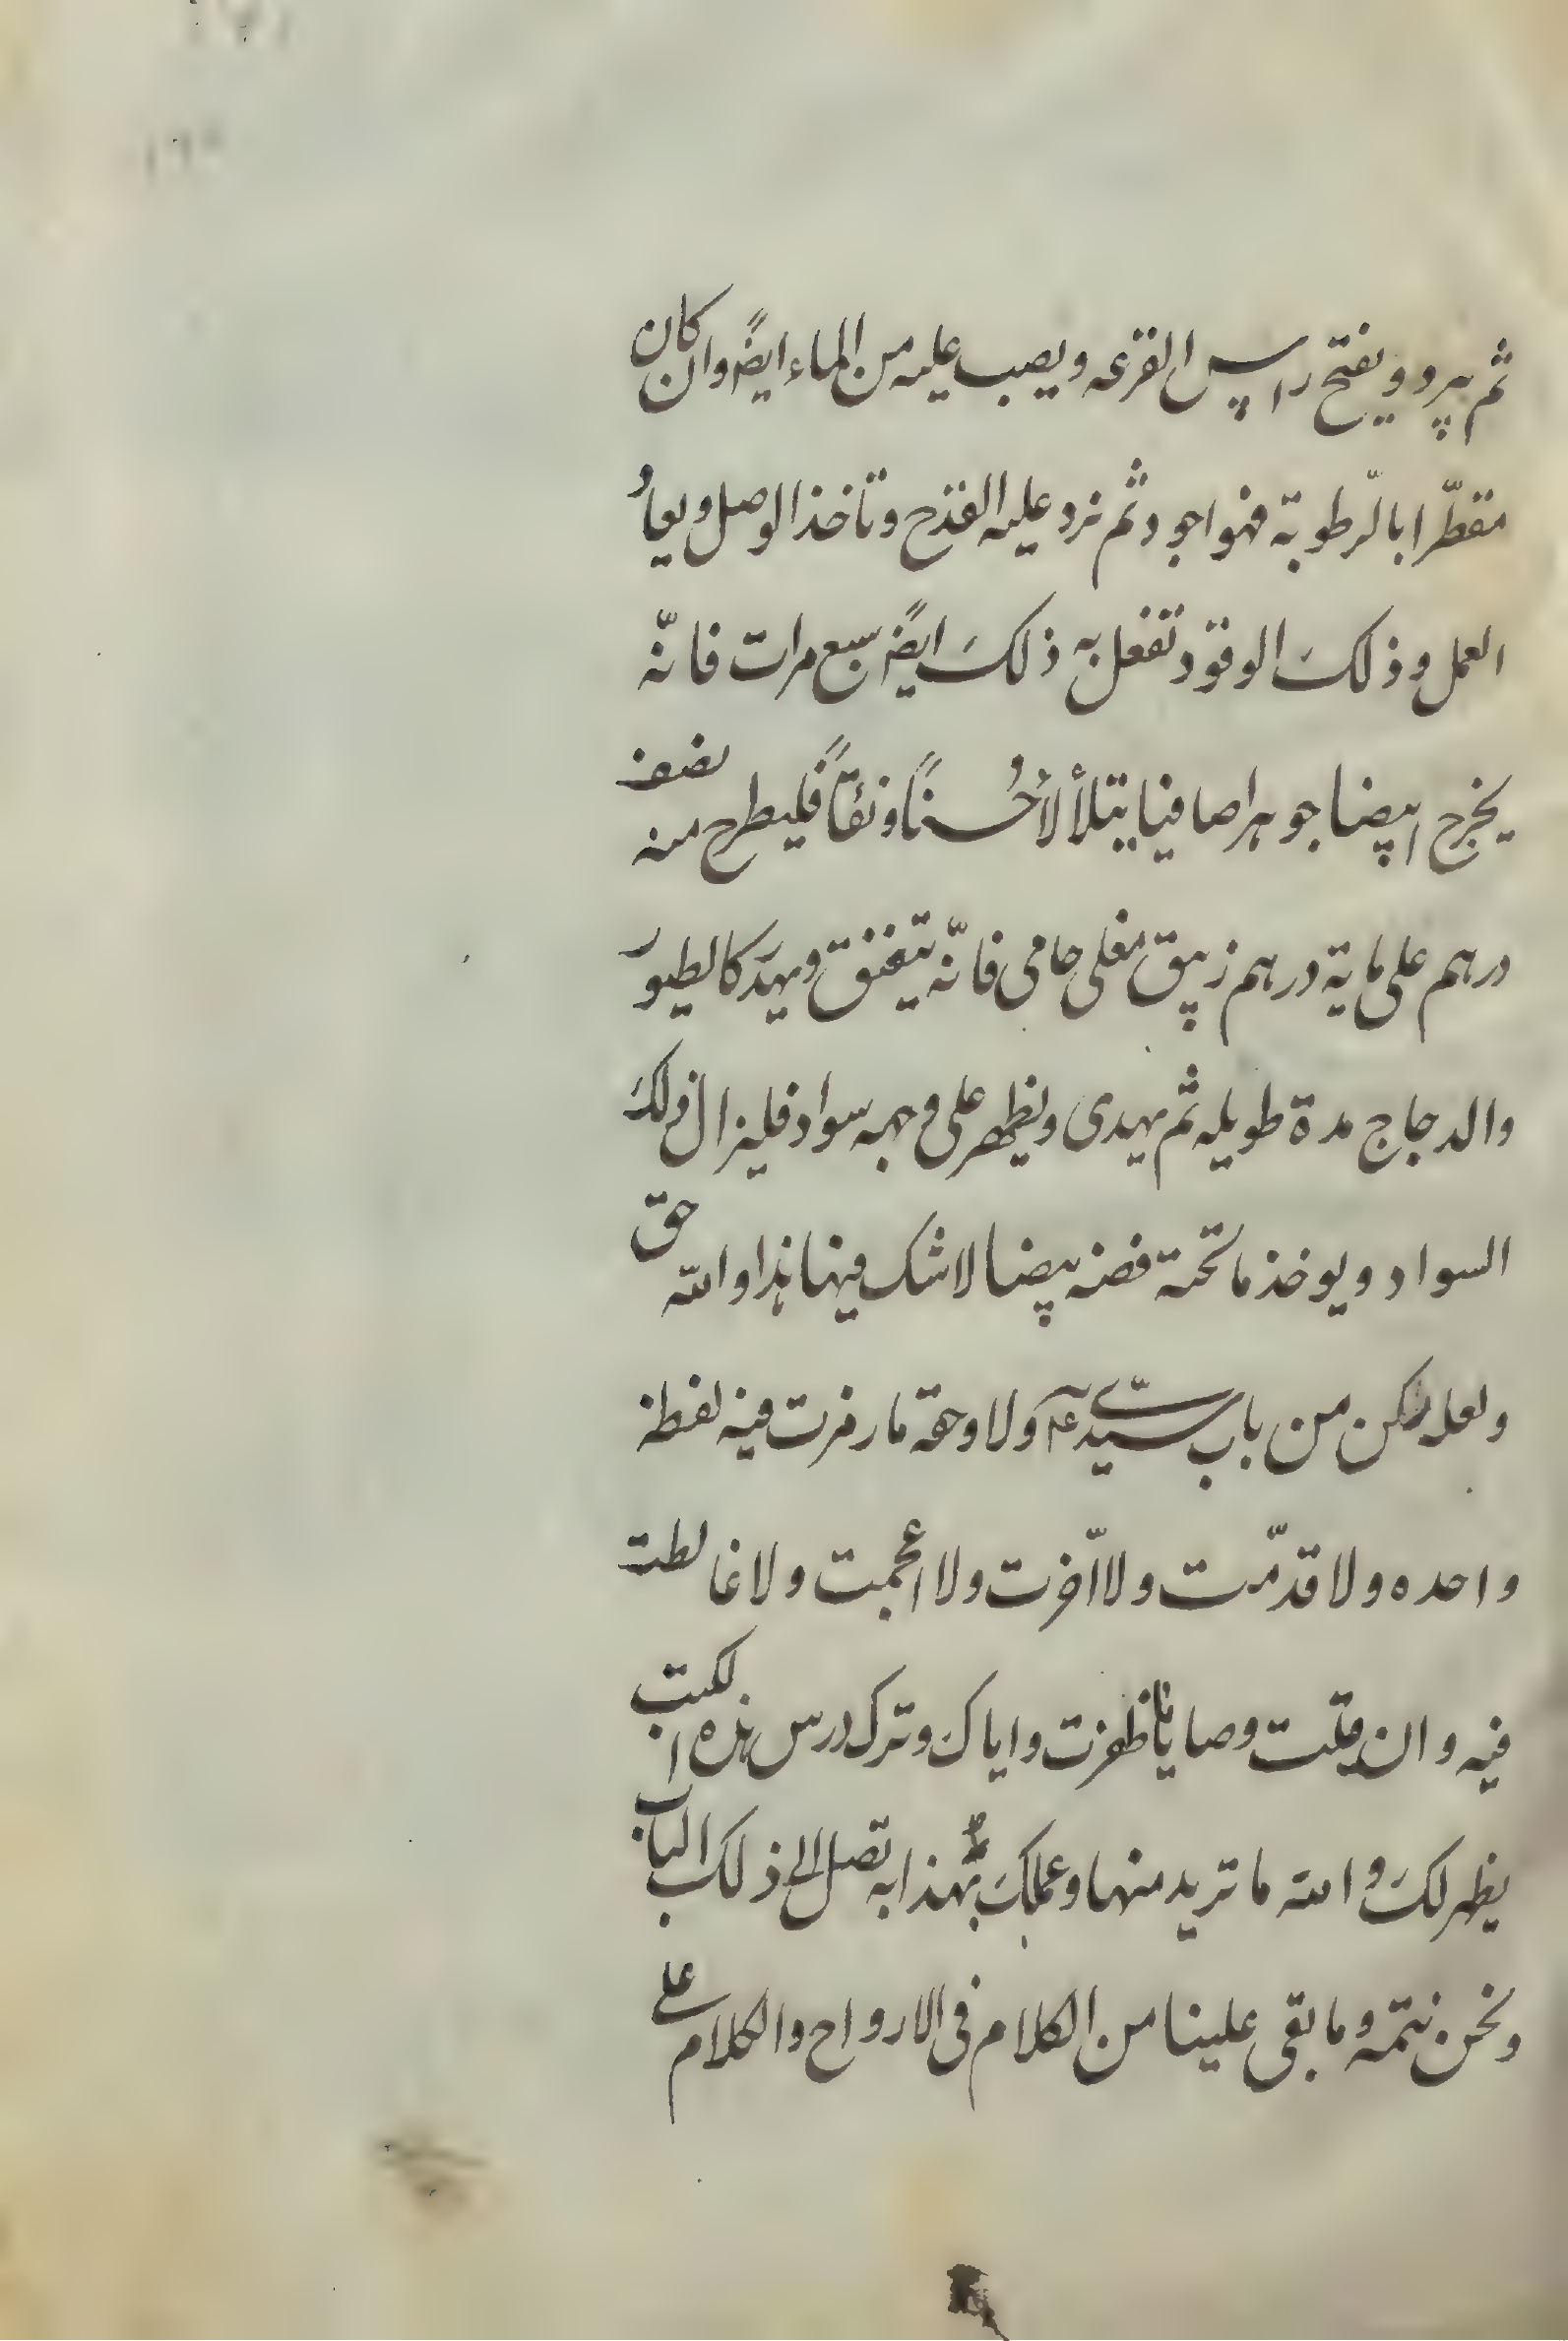 ثم يبرد ويفتح راس القرعه ويصب عليه من الماء ايضً وان كان
مقطّرا بالرّطوبة فهو اجود ثم ترد عليه القدح وتاخذ الوصل ويعادُ
العمل وذلكَ الوقود تفعل به ذلكَ ايضً سبع مرات فانّه
يخرج ابيضا جوهرا صافيا يتلألأ حُسنًا ونقآً فليطرح منه نصف
درهم على ماية درهم زيبق مغلى حامى فانّه يتغنغق ويهدَر كالطيور
والدجاج مدة طويله ثم يهدى ويظهر على وجهه سواد فليزال ذلكَ
السواد ويوخذ ما تحته فضه بيضا لا شك فيها هذا والله حق
ولعله يكن من باب سيّدى عآ ولا وحقه ما رمزت فيه لفظة
واحده ولا قدّمت ولا اّخرت ولا اعجمت ولا غالطت
فيه وان قبلت وصايانا ظفرت واياكَ وترك درس هذه الكتب
يظهر لكَ والله ما تريد منها وعملكَ بهذا به تصل الى ذلك الباب
ونحن نتمه وما بقى علينا من الكلام فى الارواح والكلام على